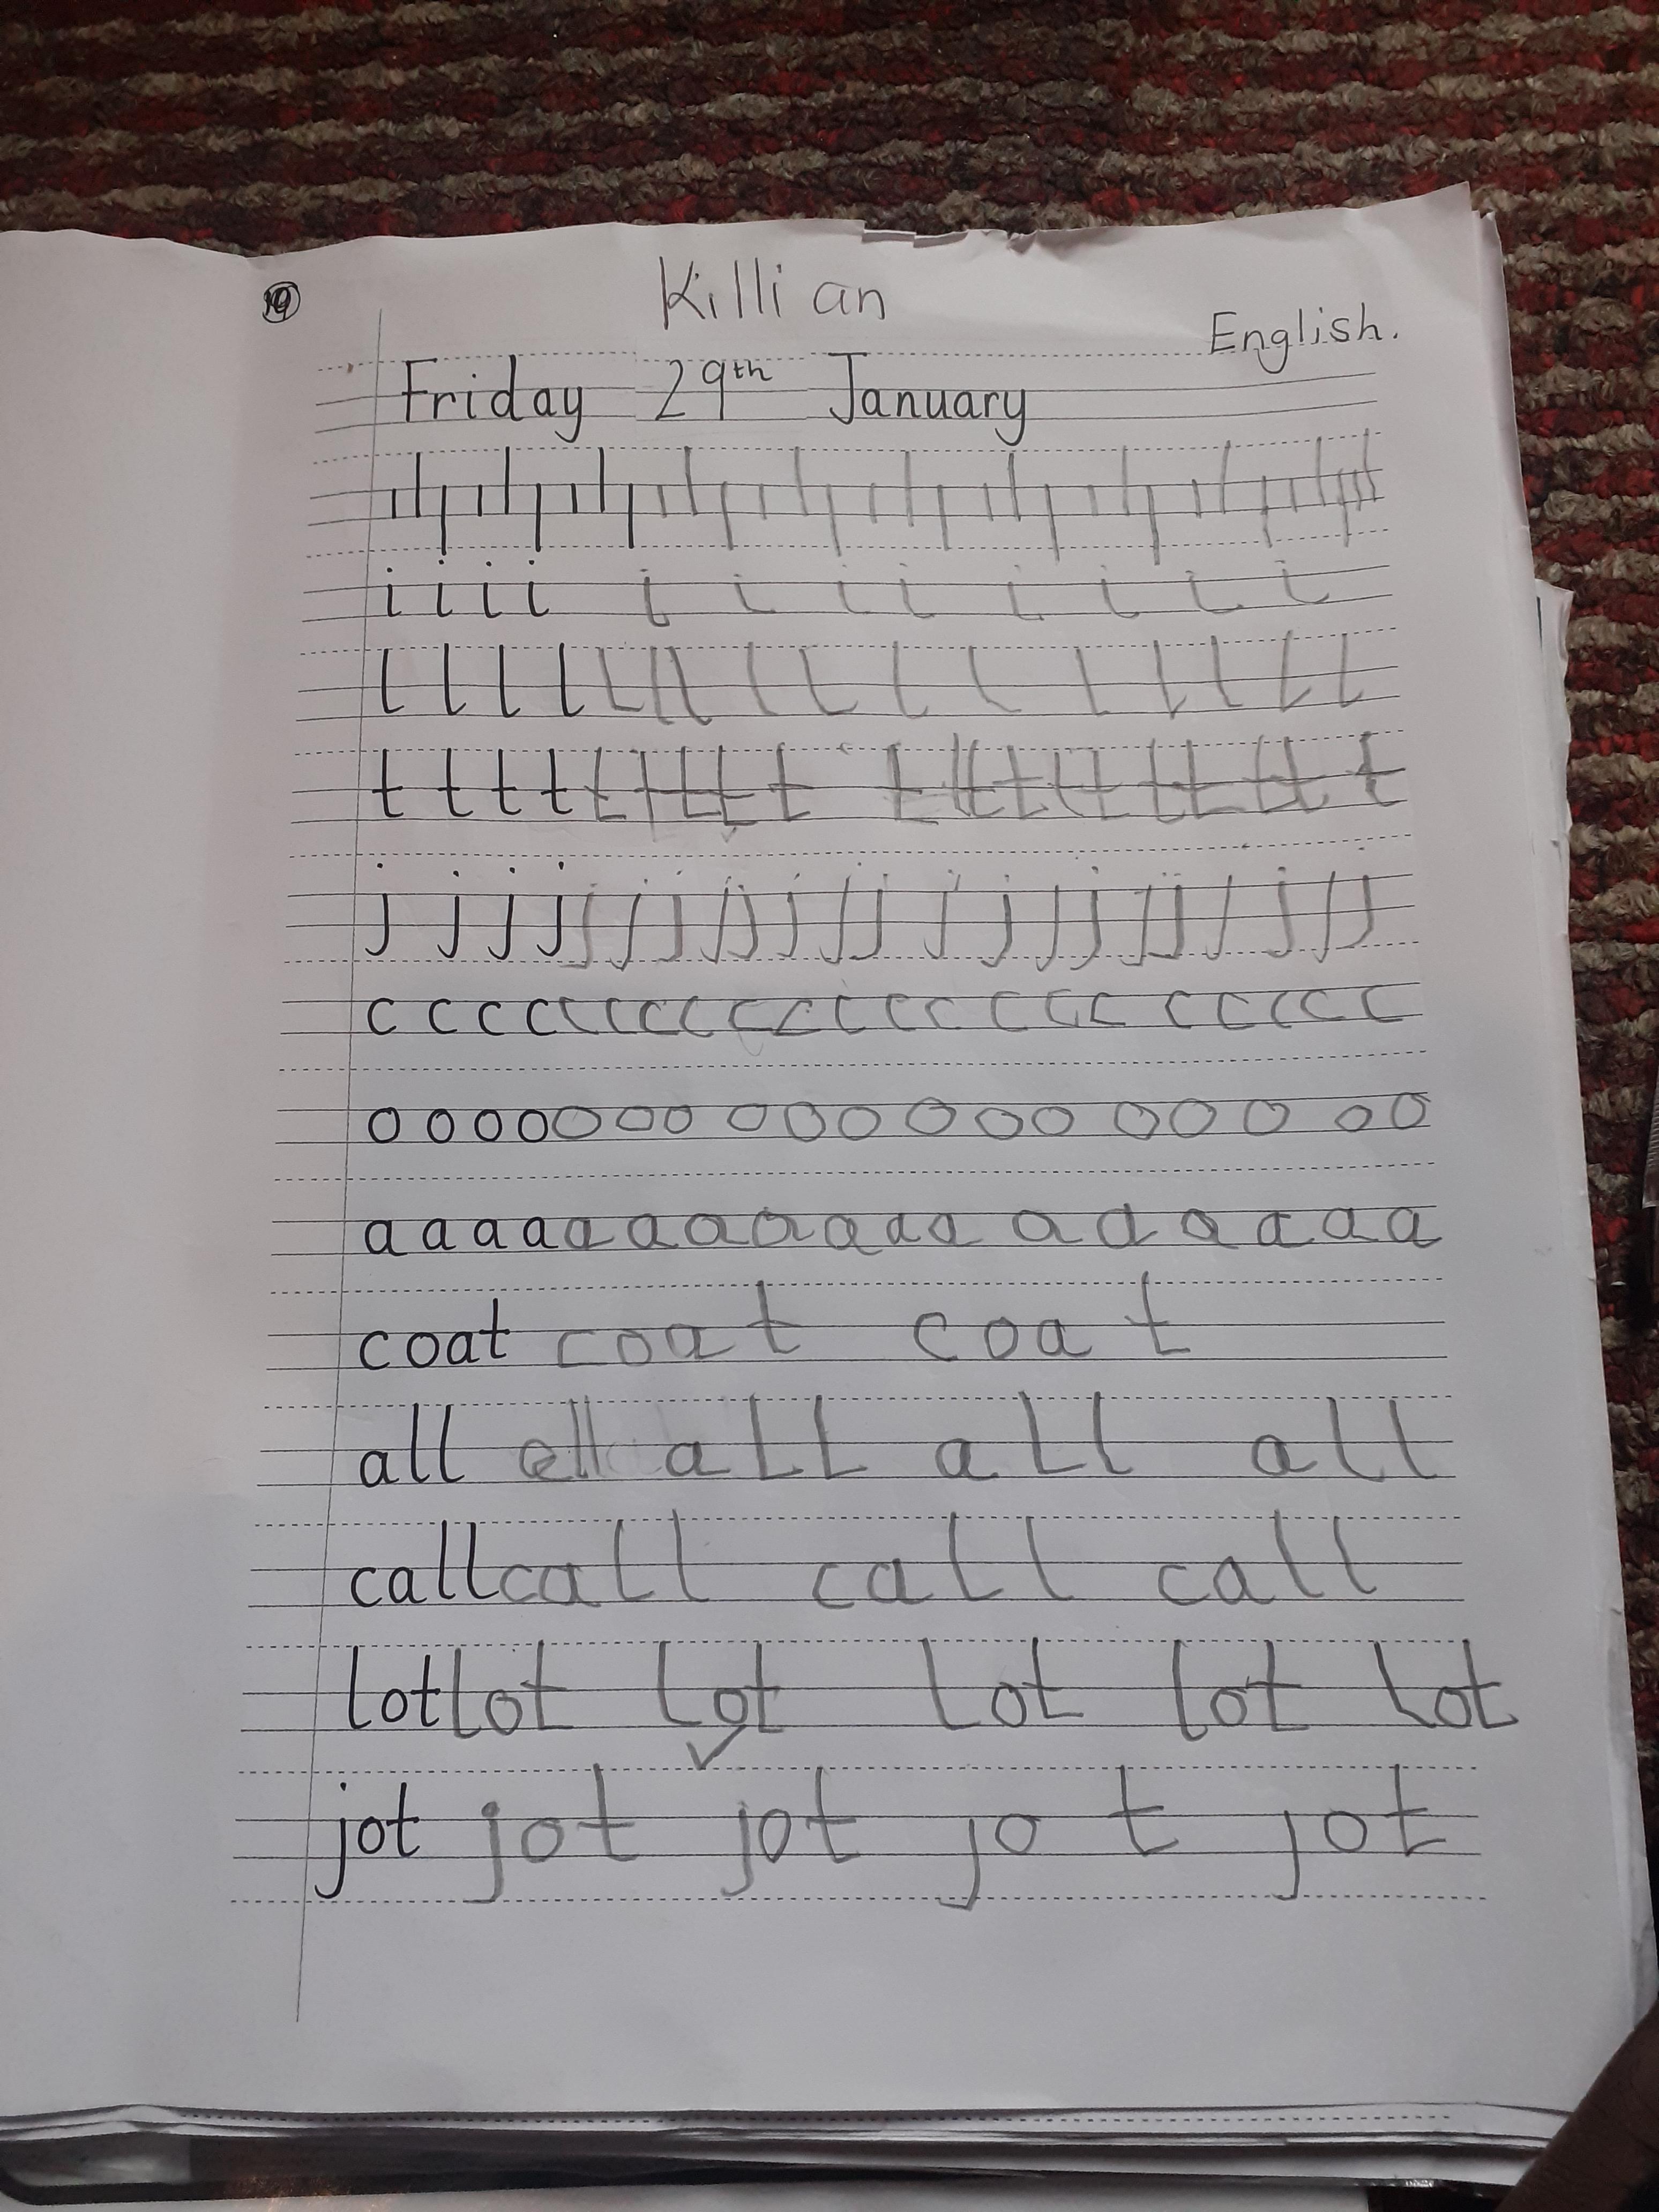 Killian
English.
Friday 29th January
i i i i i i i i i i i i
l l l l l l l l l l l l l l l l l
t t t t t t t t t t t t t t t t t t t t
j j j j j j j j j j j j j j j j j j j j j j j
c c c c c c c c c c c c c c c c c c c c c
o o o o o o o o o o o o o o o o o o
a a a a a a a a a a a a a a a a a
coat coat coat
all all all all all
call call call call
lot lot lot lot lot lot
jot jot jot jot jot